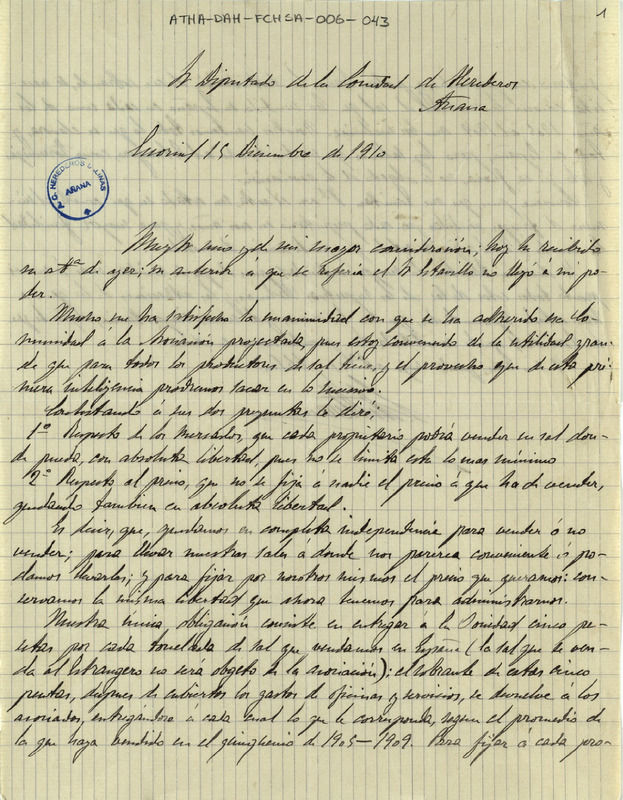 ATHA-DAH-FCHSA-006-043
1
Sr Diputado de la Comunidad de Herederos
Arana
15 Diciembre de 1910
A. C. HEREDEROS SALINAS
ARANA
Muy Sr mio y de mi mayor consideración; hoy he recibido
su atta de ayer; su anterior á que se referia el Sr no llegó á mi po-
der.
Mucho me ha satisfecho la unanimidad con que se ha adherido esa Co-
munidad á la Asociación proyectada, pues estoy convencido de la utilidad gran-
de que para todos los productores de sal tiene, y el provecho que de esta pri-
mera inteligencia podremos sacar en lo sucesivo.
Contestando á sus dos preguntas le diré;
1º Respecto de los mercados, que cada propietario podrá vender su sal don-
de pueda, con absoluta libertad, pues no se limita esto lo mas mínimo
2º Respecto al precio, que no se fija á nadie el precio á que ha de vender,
quedando tambien en absoluta libertad.
Es decir, que, quedamos en completa independencia para vender ó no
vender; para llevar nuestras sales a donde nos parezca conveniente ó po-
damos llevarlas; y para fijar por nosotros mismos el precio que queramos: con-
servamos la misma libertad que ahora tenemos para administrarnos.
Nuestra única obligación consiste en entregar a la Sociedad cinco pe-
setas por cada tonelada de sal que vendamos en España (la sal que se ven-
da al Estrangero no será obgeto de la asociación); el sobrante de estas cinco
pesetas, despues de cubiertos los gastos de oficinas y servicios, se devuelve a los
asociados, entregándose á cada cual lo que le corresponda, segun el promedio de
lo que haya vendido en el quinquenio de 1905-1909. Para fijar á cada pro-